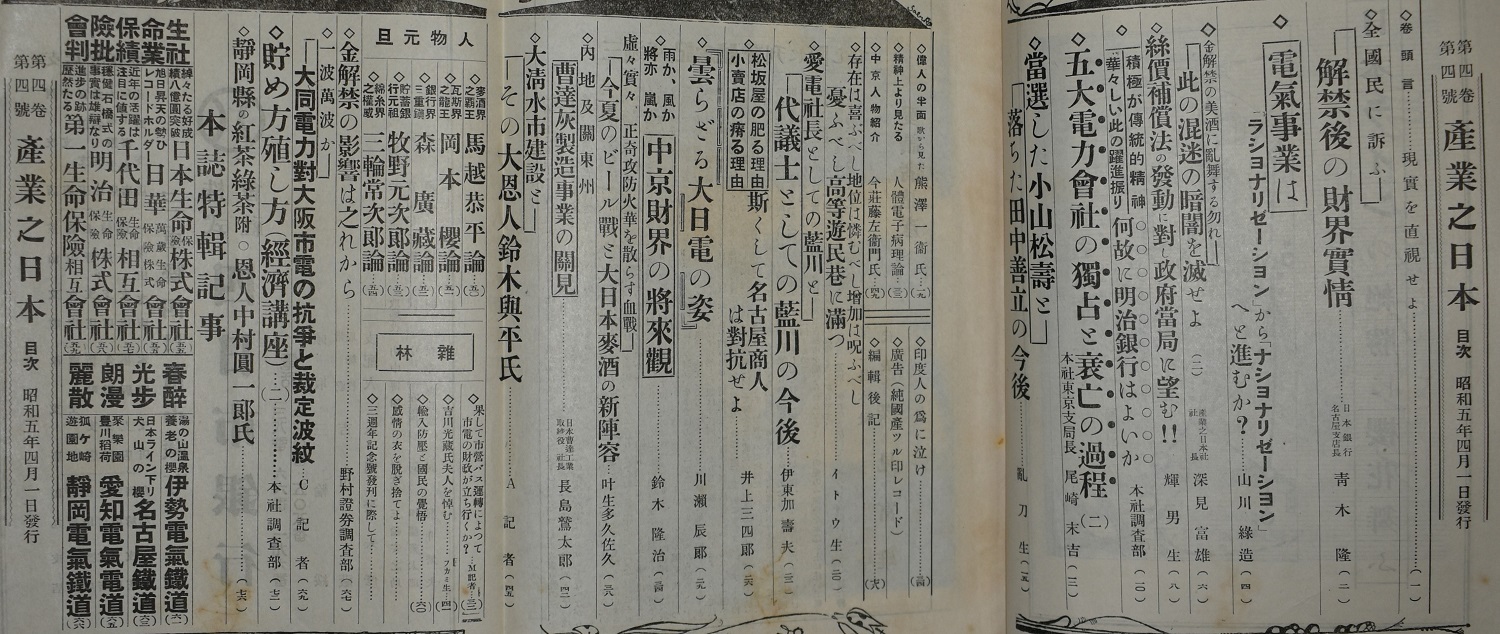 第四卷 第四號 產業之日本 目次 昭和五年四月一日發行
◇卷頭言……現實を直視せよ……(一)
◇全國民に訴ふ
解禁後の財界實情……日本銀行名古屋支店長 靑木 隆(二)
◇電氣事業は
ラショナリゼーションから「ナショナリゼーション」
へと進むか?……山川綠造(四)
◇金解禁の美酒に亂舞する勿れ
此の混迷の暗闇を滅せよ(二)……產業之日本社社長 深見富雄(六)
◇絲價補償法の發動に對し政府當局に望む!!……輝男生(八)
◇積極が傳統的精神
華々しい此の躍進振り
何故に明治銀行はよいか……本社調査部(一〇)
◇五大電力會社の獨占と衰亡の過程(二)
本社東京支局長 尾崎末吉(一三)
◇當選した小山松壽と
落ちた田中善立の今後……亂刀生(一五)
◇偉人の半面 歌から見た 熊澤一衞氏…(一九)
◇精神上より見たる 人體電子病理論…(三三)
◇中京人物紹介 今莊藤左衞門氏…(四九)
◇印度人の爲に泣け……(三四)
◇廣告(純國產ツル印レコード)
◇編輯後記……(六八)
◇存在は喜ぶべし地位は憐むべし增加は呪ふべし
憂ふべし高等遊民巷に滿つ……イトウ生(二〇)
◇愛電社長としての藍川と
代議士としての藍川の今後……伊東加壽夫(二三)
◇松坂屋の肥る理由
小賣店の瘠る理由
斯くして名古屋商人
は對抗せよ……井上三四郞(二六)
◇曇らざる『大日電の姿』……川瀨辰郞(二九)
◇雨か、風か
將亦嵐か
中京財界の將來觀……鈴木隆治(三四)
◇虛々實々、正奇攻防火華を散らす血戰
今夏のビール戰と大日本麥酒の新陣容……叶生多久佐久(三八)
◇內地及關東州
曹達灰製造事業の關見……日本曹達工業取締役社長 長島鷲太郞(四二)
◇大淸水市建設と
その大恩人鈴木與平氏……A記者(四五)
人物元旦
◇麥酒界之覇王 馬越恭平論…(五〇)
◇瓦斯界之龍王 岡本櫻論…(五一)
◇銀行界三重鎭 森廣藏論…(五二)
◇貯蓄銀行元祖 牧野元次郞論…(五三)
◇綿糸界之權威 三輪常次郞論…(五四)
雜林
◇果して市營バス運轉によつて
市電の財政が立ち行くか?…M記者…(三二)
◇吉川光藏氏夫人を悼む……フカミ生…(四一)
◇輸入防壓と國民の覺悟……(六〇)
◇感情の衣を脫ぎ捨てよ……
◇三週年記念號發刊に際して……
◇金解禁の影響は之れから……野村證券調査部(六七)
◇一波萬波か
大同電力對大阪市電の抗爭と裁定波紋……C記者(六九)
◇貯め方殖し方(經濟講座)(二)……本社調査部(七三)
◇靜岡縣の紅茶綠茶 附○恩人中村圓一郞氏……(七六)
本誌特輯記事
生命保險會社事業成績批判
綽々たる好成績八億圓突破 日本生命保險株式會社(五五)
旭日昇天の勢ひレコードホルダー 日華萬歲生命保險株式會社(五六)
近年の活躍は注目に値する 千代田生命保險相互會社(五七)
穩健石橋式の事實は雄辯なり 明治生命保險株式會社(五八)
進步の跡歷然たる 第一生命保險相互會社(五九)
春醉 光步 朗漫 麗散
湯の山溫泉 養老の櫻 伊勢電氣鐵道(六一)
日本ライン下り 犬山の櫻 名古屋鐵道(六三)
聚樂園 豐川稻荷 愛知電氣電道(六五)
狐ケ崎遊園地 靜岡電氣鐵道(六六)
第四卷 第四號 產業之日本 目次 昭和五年四月一日發行